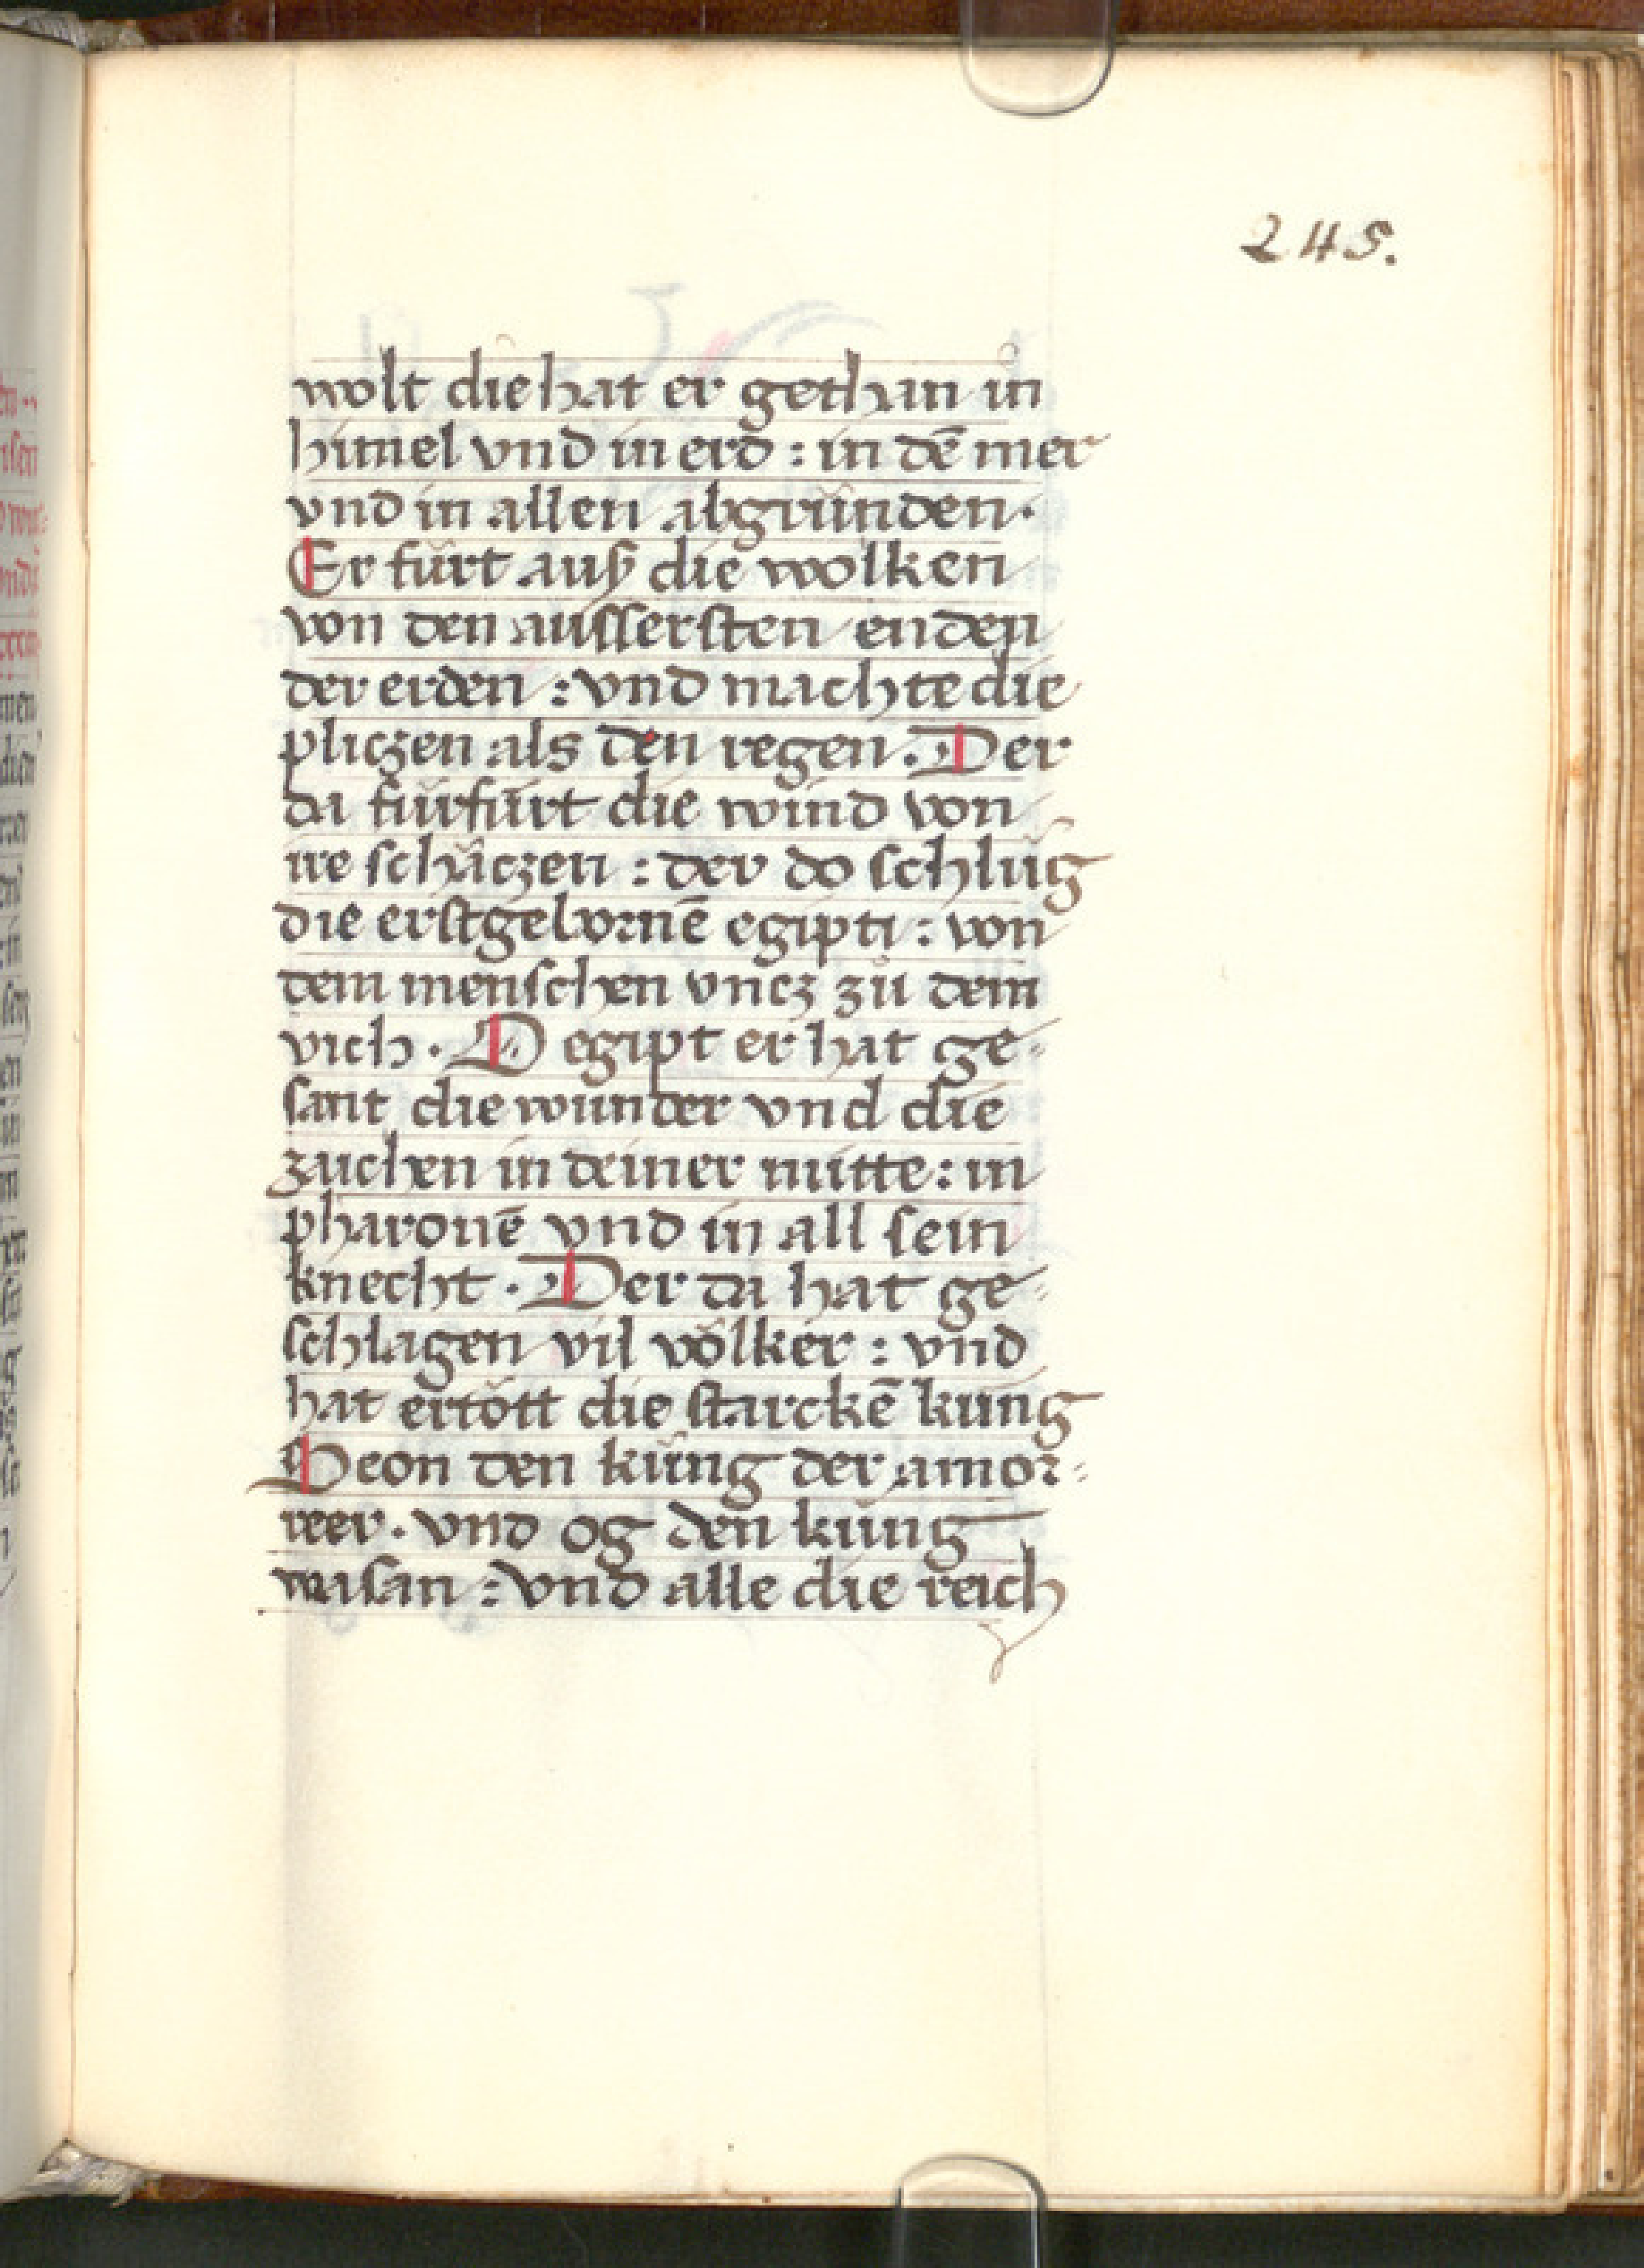 245.
wolt die hat er gethan in
himel vnd in erd : in dē mer
vnd in allen abgrúnden.
Er fůrt auß die wolken
von den aussersten enden
der erden : vnd machte die
pliczen als den regen. Der
da fúrfúrt die wind von
ire schäczen : der do schlůg
die erstgebornē egipti : von
dem menschen vncz zů dem
vich. O egipt er hat ge-
sant die wunder vnd die
zaichen in deiner mitte : in
pharonē vnd in all sein
knecht. Der da hat ge-
schlagen vil völker : vnd
hat ertött die starckē kúng
Seon den kúng der amor-
reer. vnd og den kúng
wasan : vnd alle die reich